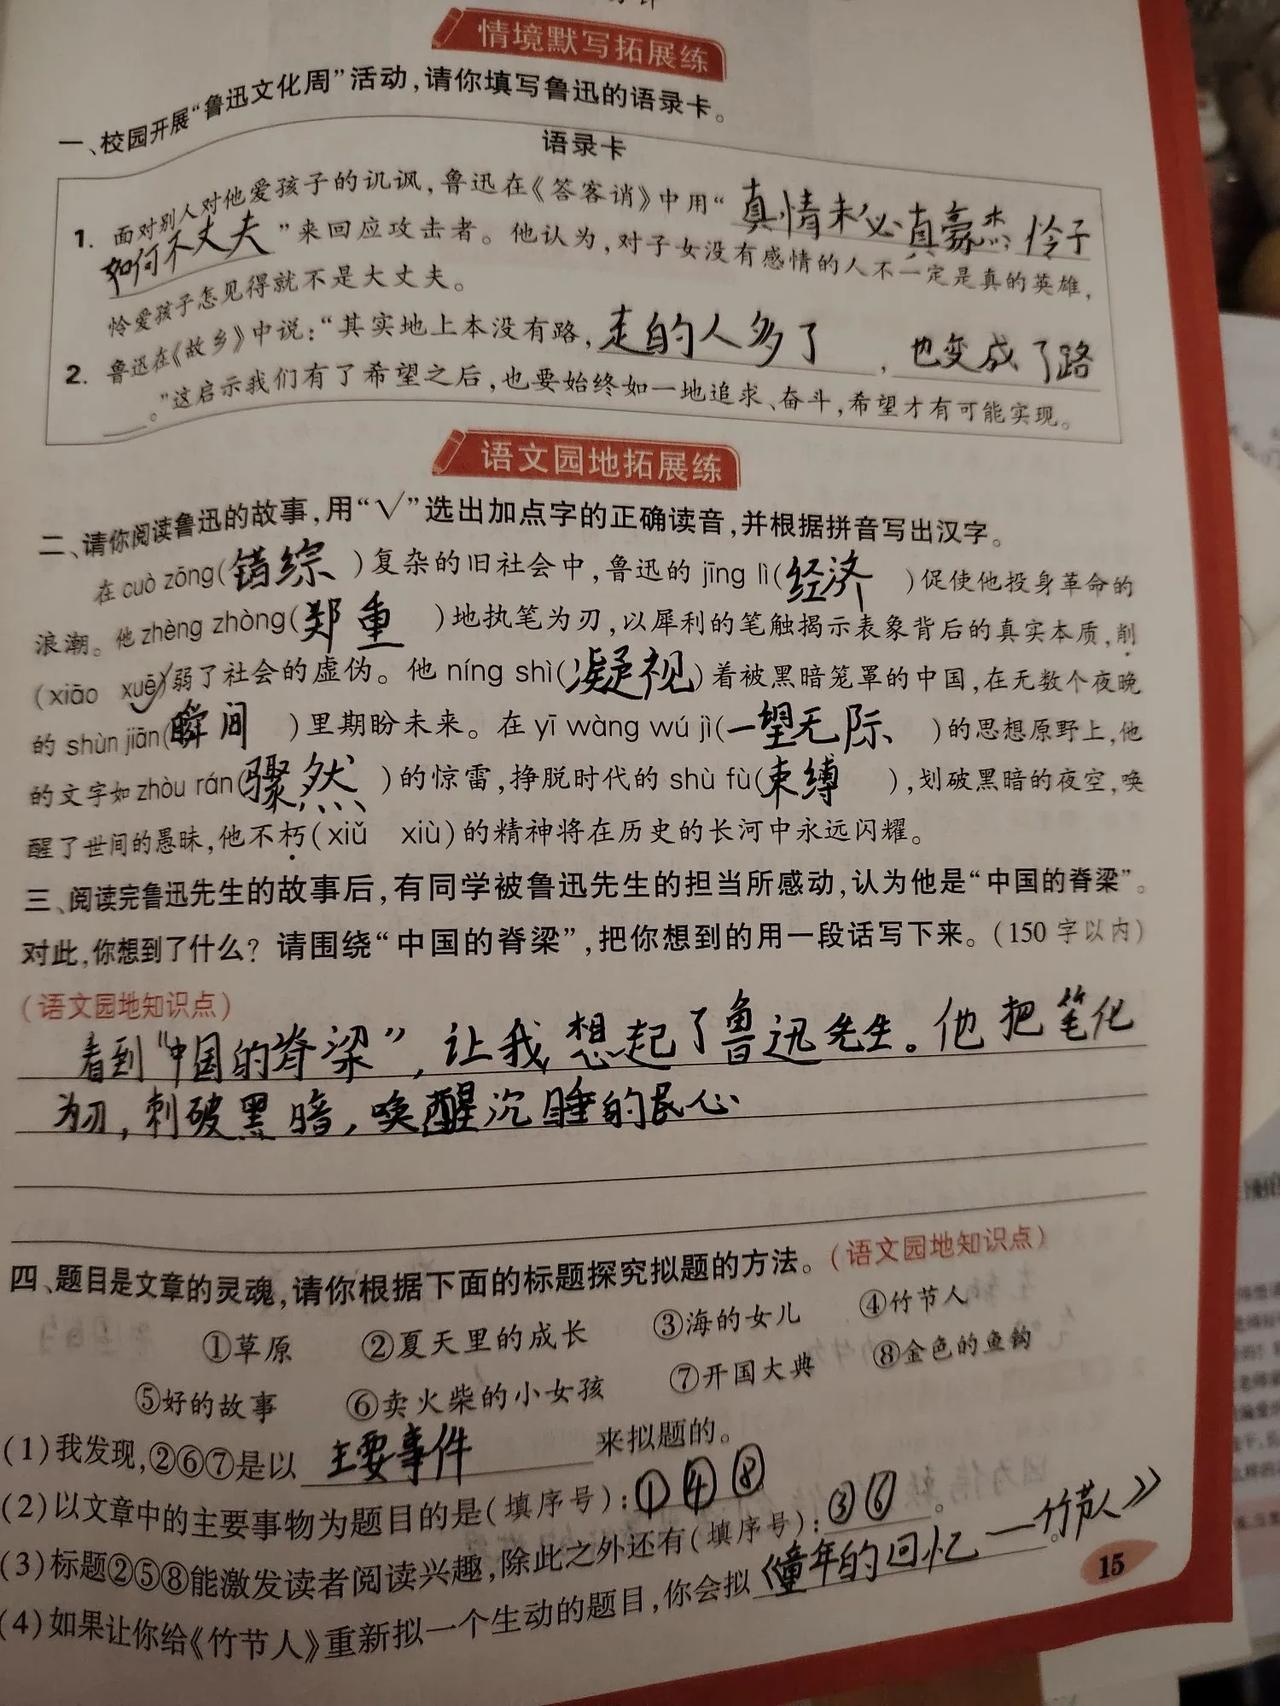 情境默写拓展练
一、校园开展“鲁迅文化周”活动,请你填写鲁迅的语录卡。
语录卡
1. 面对别人对他爱孩子的讥讽,鲁迅在《答客诮》中用“真情未必真豪杰,怜子
如何不丈夫”来回应攻击者。他认为,对子女没有感情的人不一定是真的英雄,
怜爱孩子怎见得就不是大丈夫。
2. 鲁迅在《故乡》中说:“其实地上本没有路,走的人多了,也变成了路
。”这启示我们有了希望之后,也要始终如一地追求、奋斗,希望才有可能实现。
语文园地拓展练
二、请你阅读鲁迅的故事,用“√”选出加点字的正确读音,并根据拼音写出汉字。
在cuò zōng(错综)复杂的旧社会中,鲁迅的jīng lì(经济)促使他投身革命的
浪潮。他zhèng zhòng(郑重)地执笔为刃,以犀利的笔触揭示表象背后的真实本质,削
(xiāo xuē√)弱了社会的虚伪。他níng shì(凝视)着被黑暗笼罩的中国,在无数个夜晚
的shùn jiān(瞬间)里期盼未来。在yī wàng wú jì(一望无际)的思想原野上,他
的文字如zhòu rán(骤然)的惊雷,挣脱时代的shù fù(束缚),划破黑暗的夜空,唤
醒了世间的愚昧,他不朽(xiǔ xiù)的精神将在历史的长河中永远闪耀。
三、阅读完鲁迅先生的故事后,有同学被鲁迅先生的担当所感动,认为他是“中国的脊梁”。
对此,你想到了什么?请围绕“中国的脊梁”,把你想到的用一段话写下来。(150字以内)
(语文园地知识点)
看到“中国的脊梁”,让我想起了鲁迅先生。他把笔化
为刃,刺破黑暗,唤醒沉睡的民心
四、题目是文章的灵魂,请你根据下面的标题探究拟题的方法。(语文园地知识点)
①草原 ②夏天里的成长 ③海的女儿 ④竹节人
⑤好的故事 ⑥卖火柴的小女孩 ⑦开国大典 ⑧金色的鱼钩
(1)我发现,②⑥⑦是以主要事件来拟题的。
(2)以文章中的主要事物为题目的是(填序号):①④⑧。
(3)标题②⑤⑧能激发读者阅读兴趣,除此之外还有(填序号):③⑥。
(4)如果让你给《竹节人》重新拟一个生动的题目,你会拟《童年的回忆——竹节人》。
15